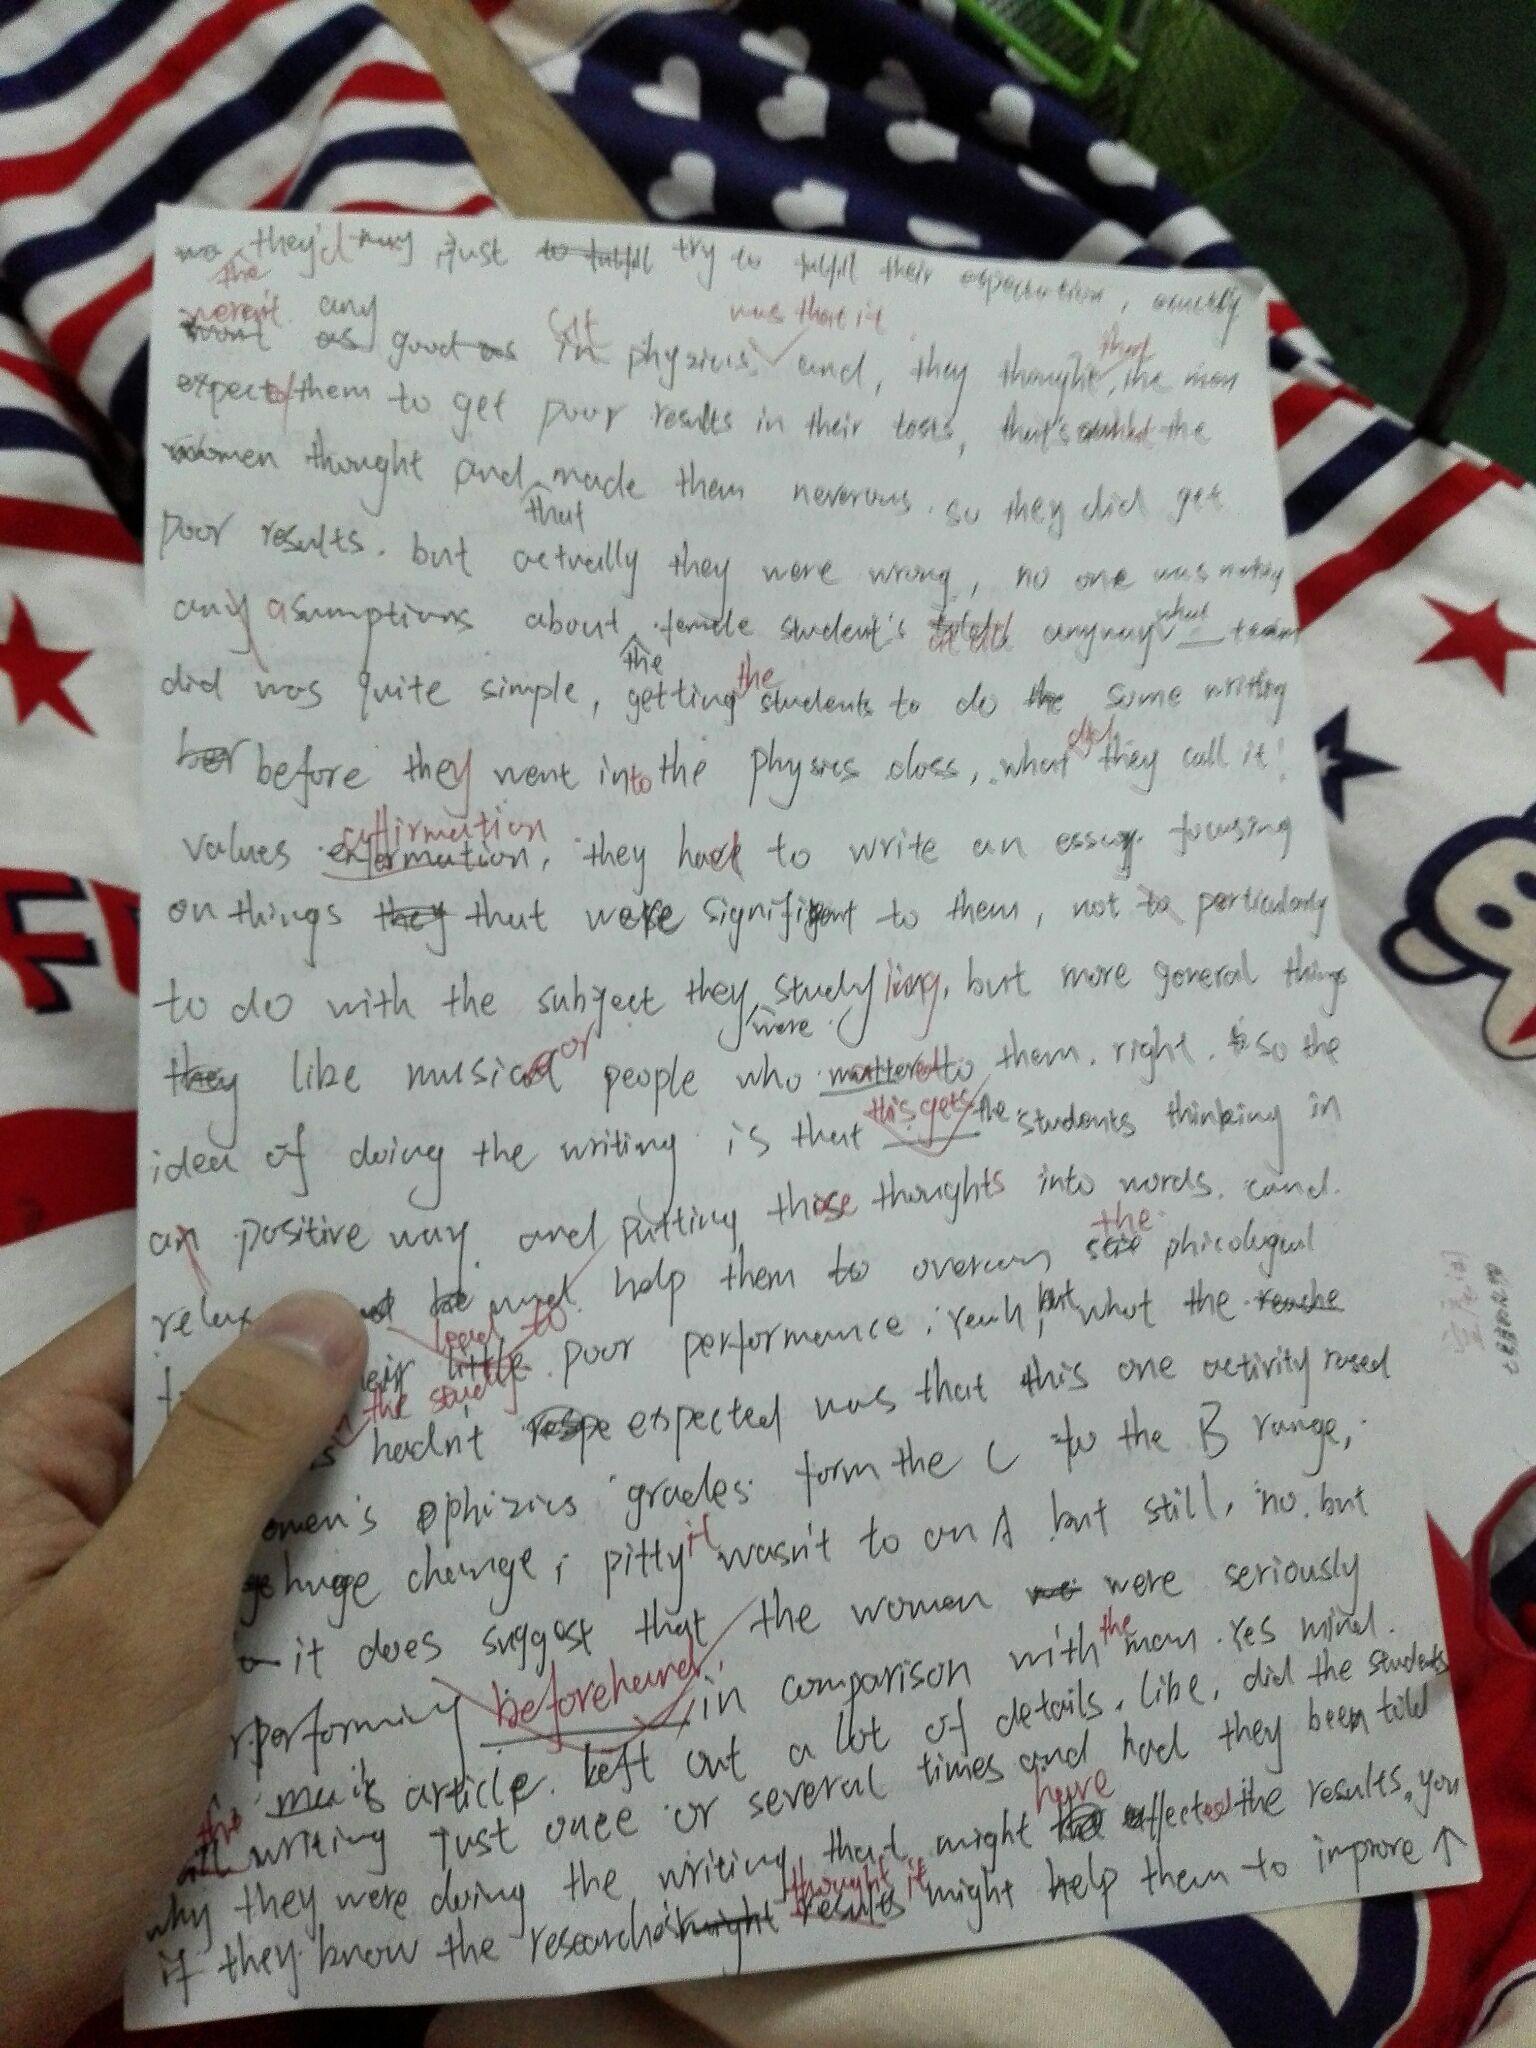 they'd just to fulfill try to fulfill their expectation, actually
the
weren't any at was that it that
as good as in physics. and, they thought, the man
expected them to get poor results in their tests, that's the
women thought and made them nervous. so they did get
that
poor results. but actually they were wrong, no one was making
any asumptions about female student's at all anyway what team
the the
did was quite simple, getting students to do the some writing
did
before they went into the physics class, what they call it!
affirmation
values exformation, they had to write an essay focusing
on things they that were significant to them, not to particularly
to do with the subject they studying, but more general things
were
they like music or people who mattered to them. right. so the
this gets the
idea of doing the writing is that students thinking in
an positive way and putting those thoughts into words. cand.
the
relax and help them to overcom phicologial
lead to but
their little poor performance. yeah, what the reseche
the study
hadn't respe expected was that this one activity rased
omen's phizics grades form the C to the B range,
it
huge change, pitty wasn't to an A but still, no. but
it does suggest that the women were seriously
beforehand the
rperforming in comparison with man. Yes mind.
article left out a lot of details. like, did the students
the writing just once or several times and had they been told
have
why they were doing the writing, that might affected the results, you
thought it
if they know the researche might results might help them to improve ↑